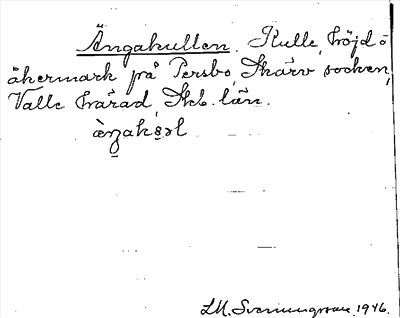 Ängakullen. Kulle, höjd å
åkermark på Persbo, Skärv socken,
Valle härad, Skb. län.
L.M. Svenungsson 1946.